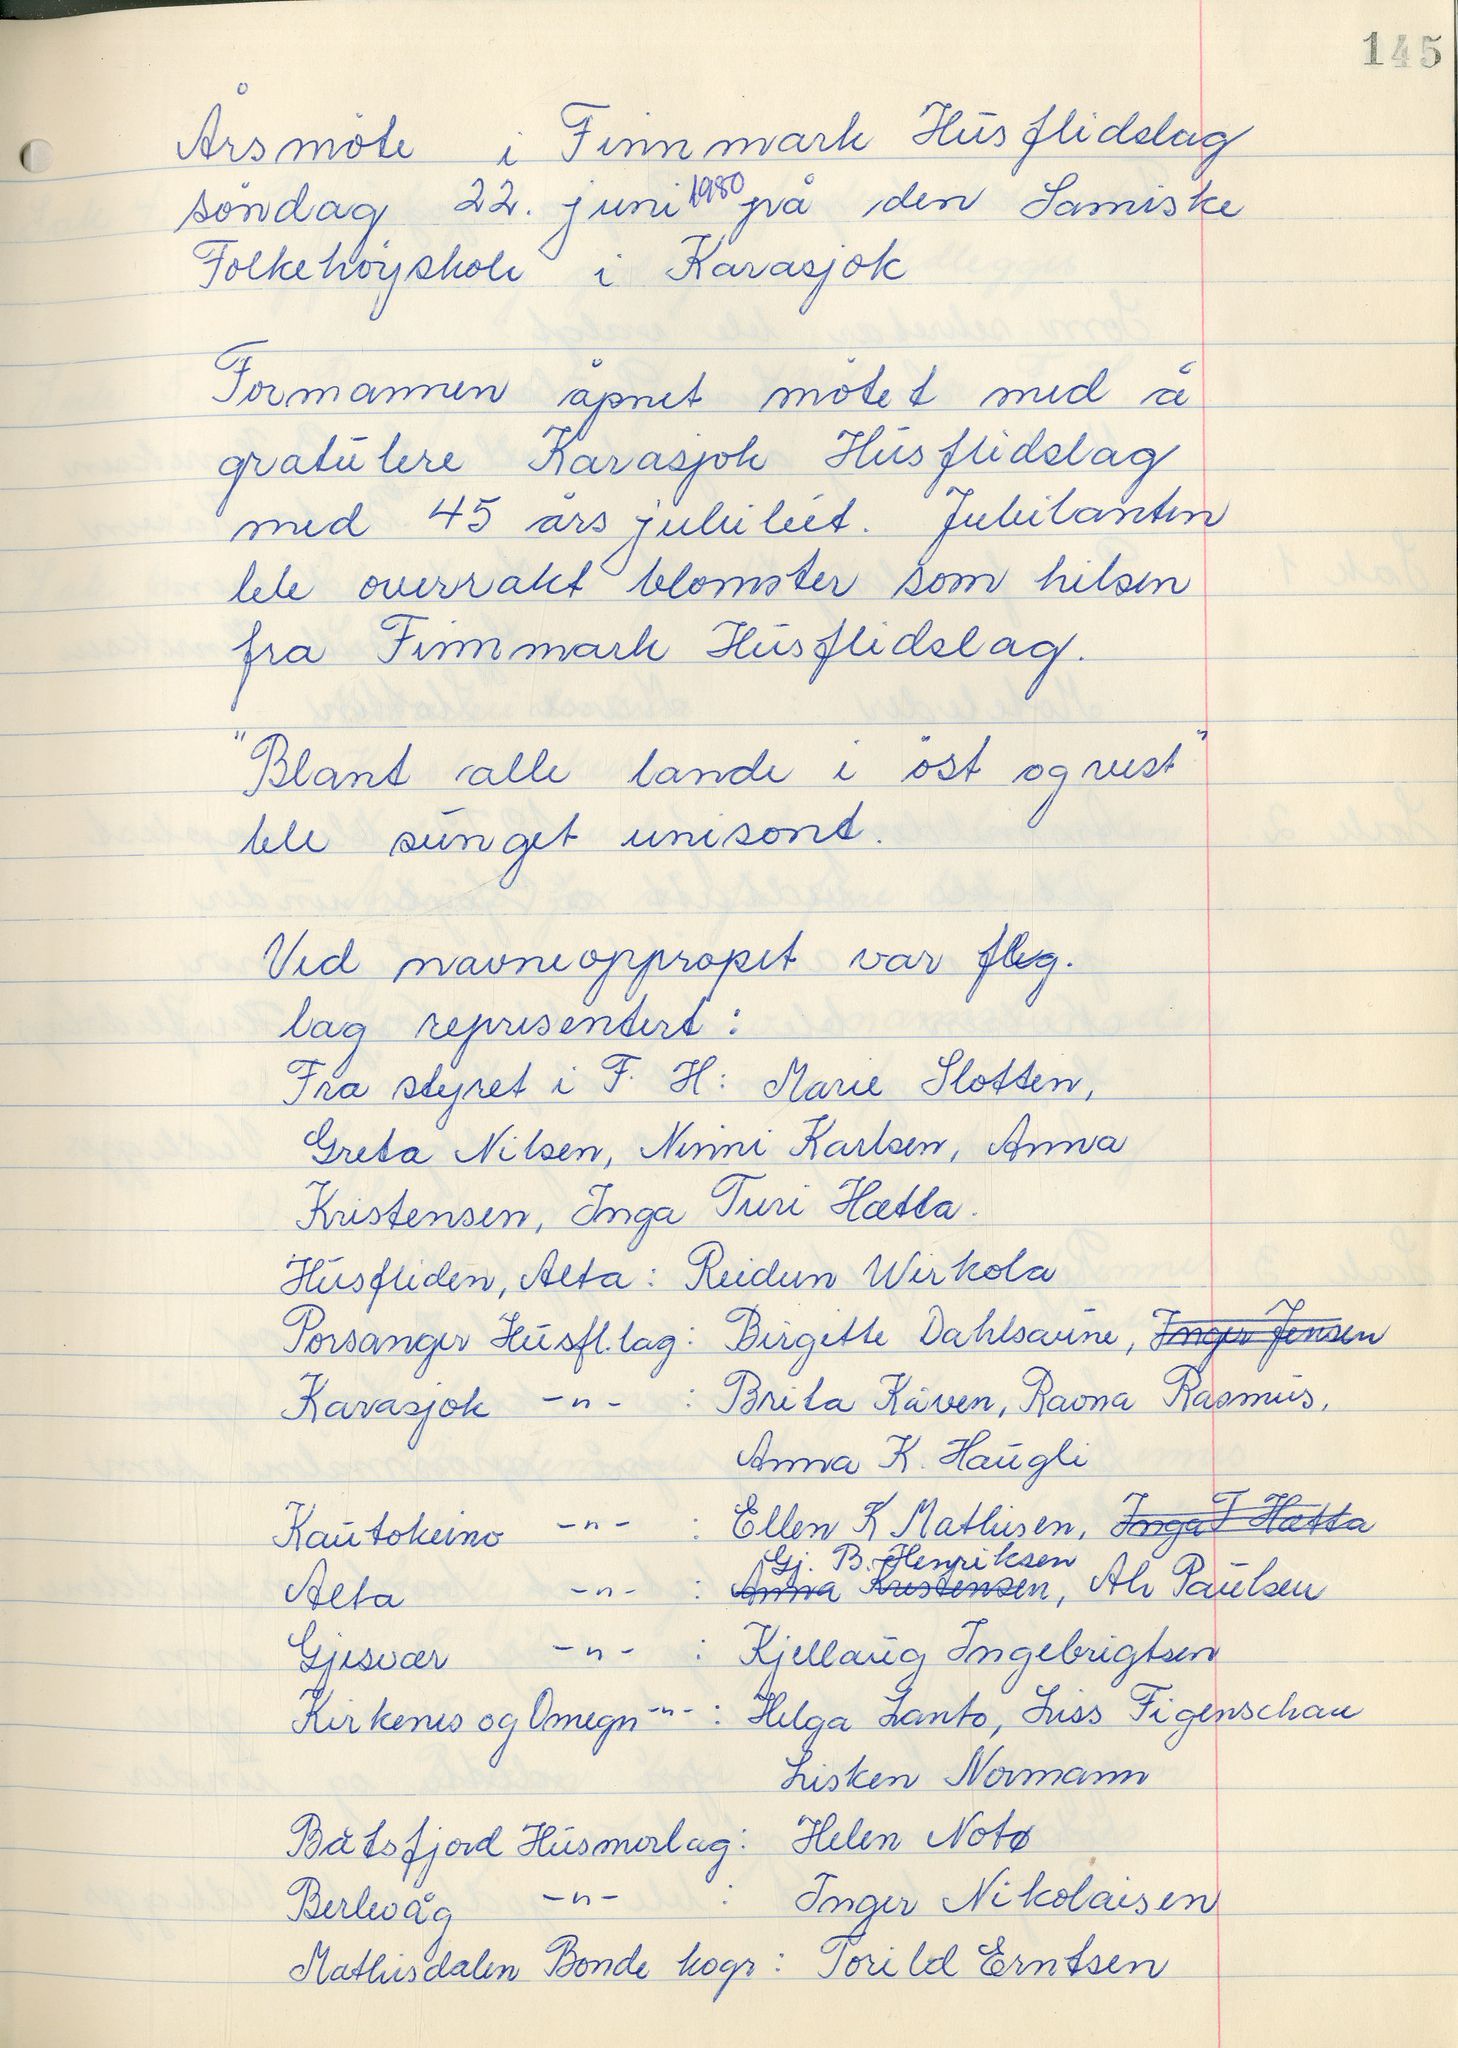 145
Årsmöte i Finnmark Husflidslag
söndag 22. juni 1980 på den Samiske
Folkehöyskole i Karasjok
Formannen åpnet mötet med å
gratulere Karasjok Husflidslag
med 45 års jubiléet. Jubilanten
ble overrakt blomster som hilsen
fra Finnmark Husflidslag.
"Blant alle lande i öst og vest"
ble sunget unisont.
Ved navneoppropet var flg.
lag representert:
Fra styret i F. H: Marie Slotten,
Greta Nilsen, Ninni Karlsen, Anna
Kristensen, Inga Turi Hætta.
Husfliden, Alta: Reidun Wirkola
Porsanger Husfl.lag: Birgitte Dahlsaune, Inger Jensen
Karasjok -"- : Brita Kåven, Ravna Rasmus,
Anna K. Haugli
Kautokeino -"- : Ellen K Mathisen, Inga T Hætta
Gj. B. Henriksen
Alta -"- : Anna Kristensen, Ah Paulsen
Gjesvær -"- : Kjellaug Ingebrigtsen
Kirkenes og Omegn -"- : Helga Lanto, Liss Figenschau
Lisken Normann
Båtsfjord Husmorlag: Helen Notø
Berlevåg -"- : Inger Nikolaisen
Mathisdalen Bonde kogr: Torild Erntsen